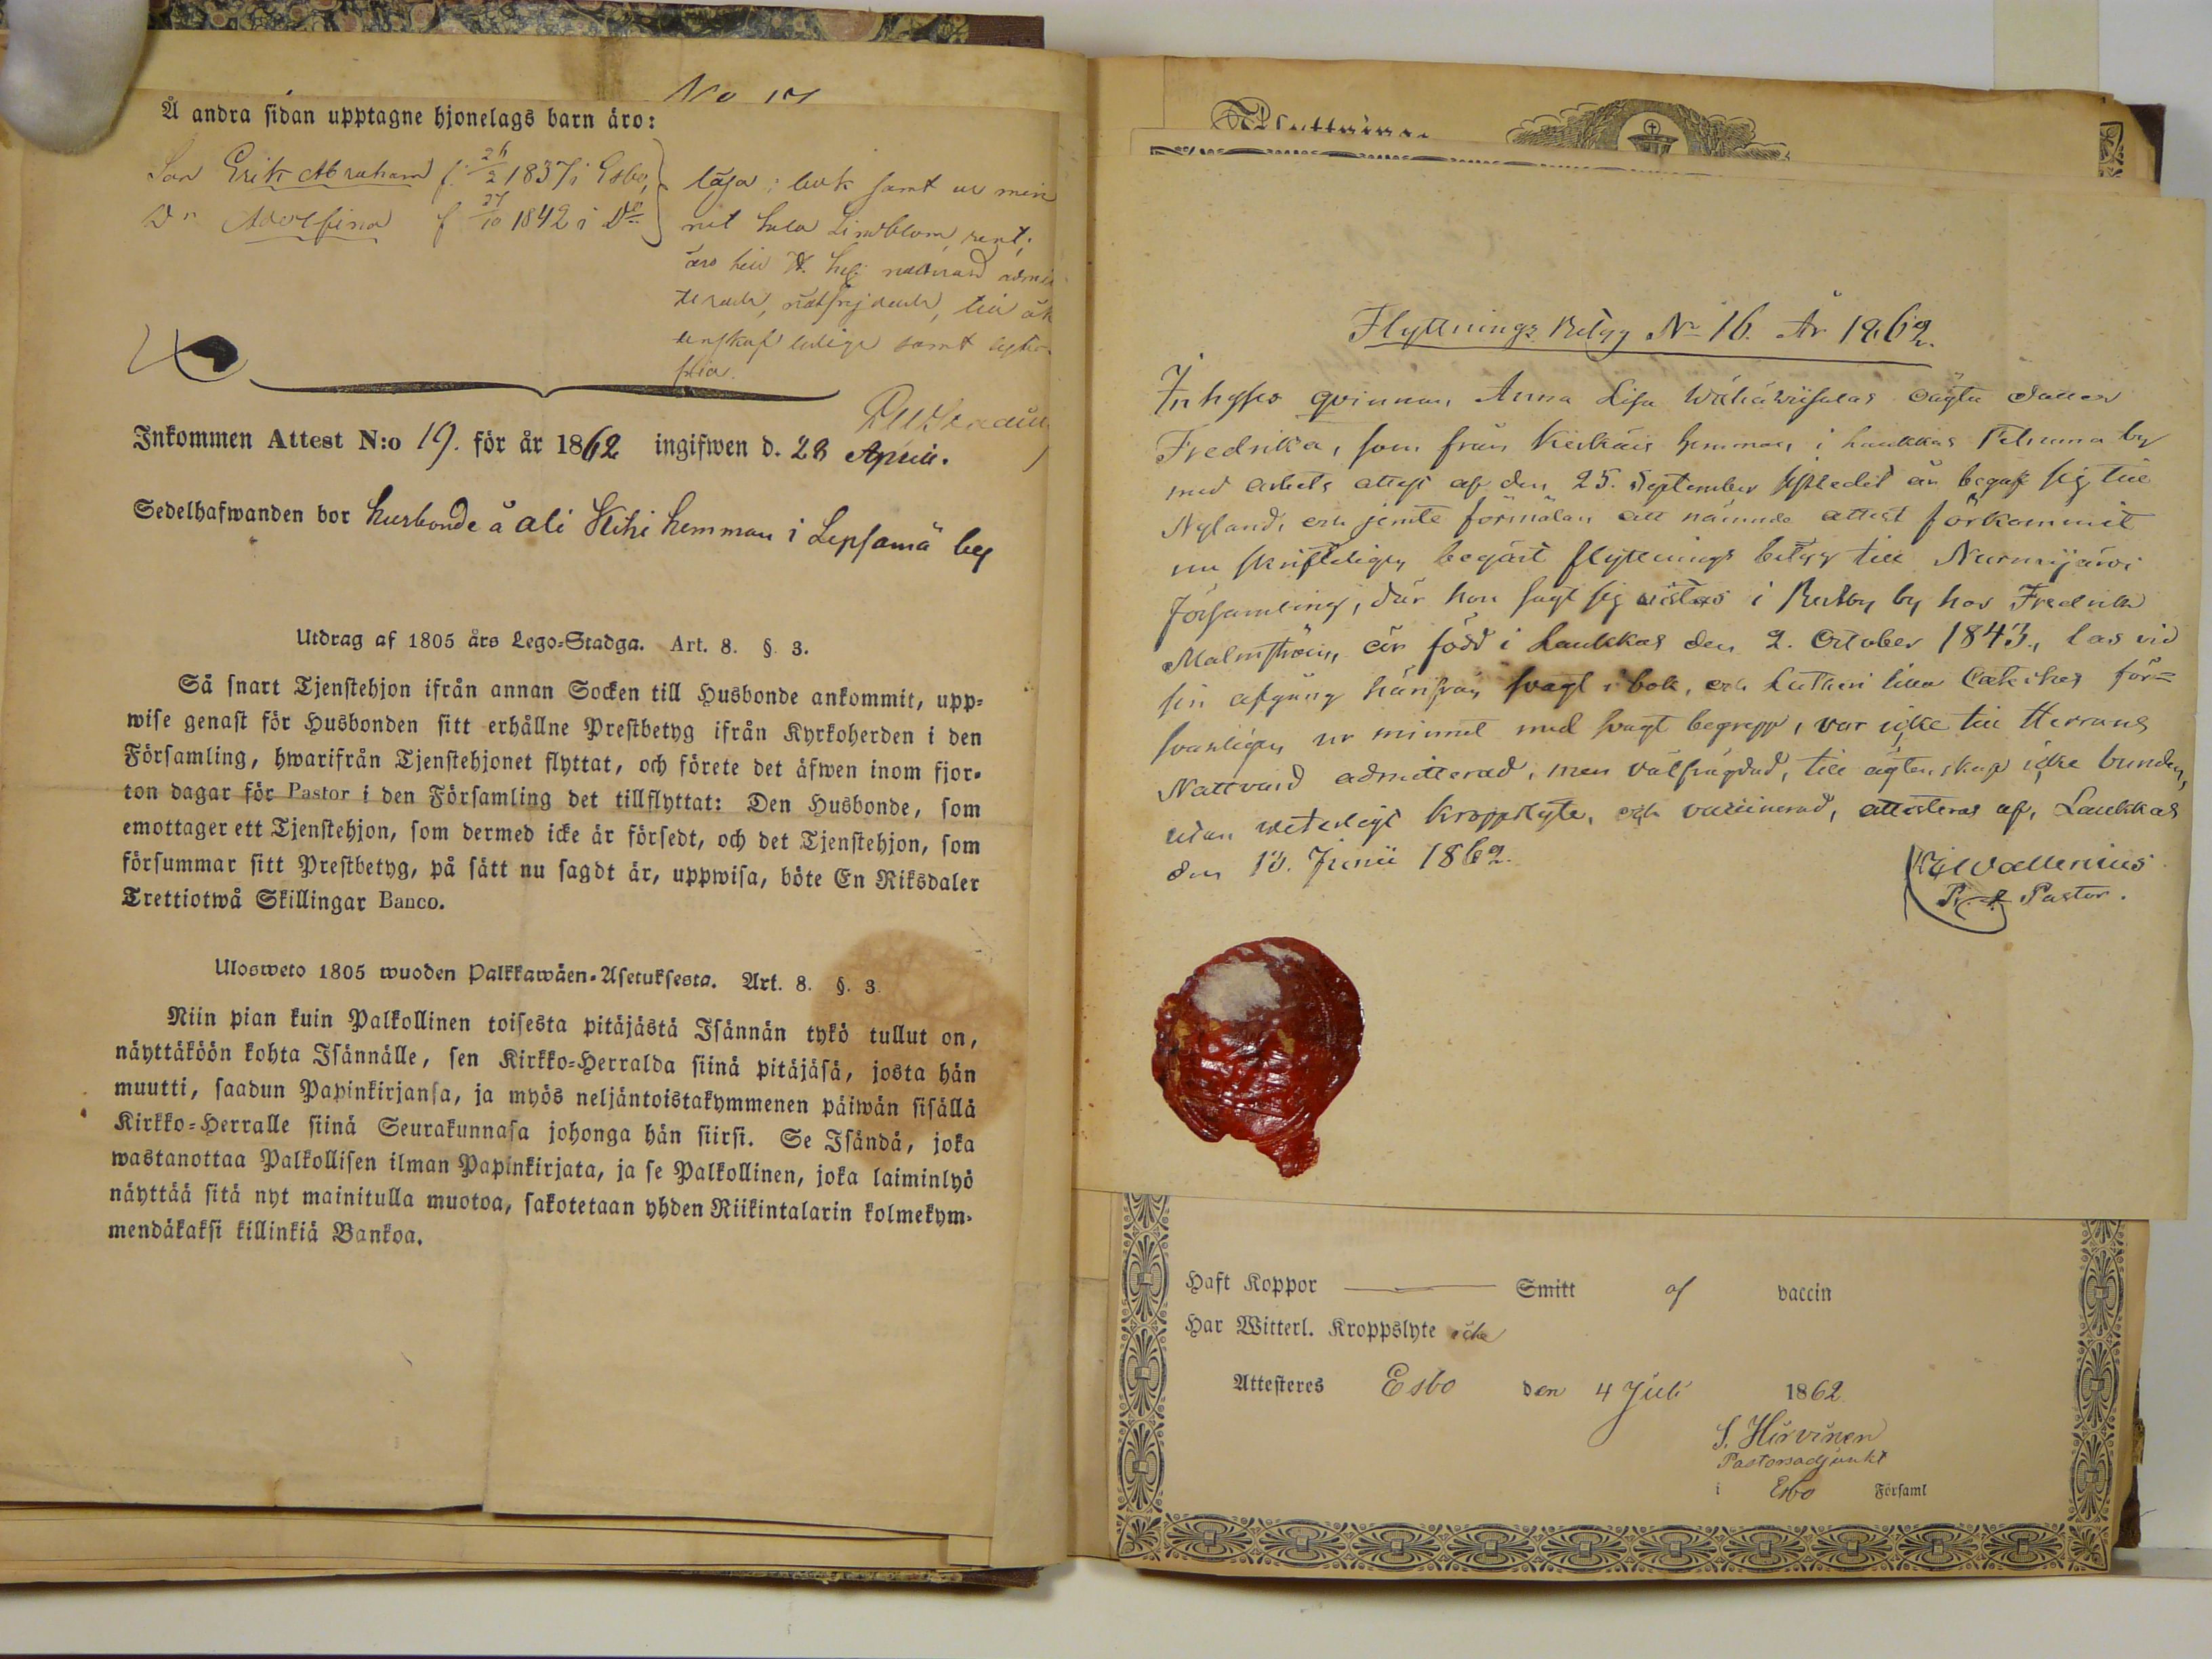 No 17
Å andra sidan upptagne hjonelags barn äro:
Son Erik Abraham f. 26/2 1837 i Esbo,
Dr Adolfina f 27/10 1842 i Do
läsa i bok samt ur min
net hela Lindblom, samt;
äro till H. Helg. nattvard admit
terade, välfrejdade, till äk
tenskap ledige samt lyte
fria.
Inkommen Attest N:o 19. för år 1862 ingifwen d. 28 April.
Sedelhafwanden bor husbonde å Ali Kihi hemman i Lepsamä by
Utdrag af 1805 års Lego-Stadga. Art. 8. §. 3.
Så snart Tjenstehjon ifrån annan Socken till Husbonde ankommit, upp-
wise genast för Husbonden sitt erhållne Prestbetyg ifrån Kyrkoherden i den
Församling, hwarifrån Tjenstehjonet flyttat, och förete det äfwen inom fjor-
ton dagar för Pastor i den Församling det tillflyttat: Den Husbonde, som
emottager ett Tjenstehjon, som dermed icke är försedt, och det Tjenstehjon, som
försummar sitt Prestbetyg, på sätt nu sagdt är, uppwisa, böte En Riksdaler
Trettiotwå Skillingar Banco.
Ulosweto 1805 wuoden Palkkawäen-Asetuksesta. Art. 8. §. 3.
Niin pian kuin Palkollinen toisesta pitäjästä Isännän tykö tullut on,
näyttäköön kohta Isännälle, sen Kirkko-Herralda siinä pitäjäsä, josta hän
muutti, saadun Papinkirjansa, ja myös neljäntoistakymmenen päiwän sisällä
Kirkko-Herralle siinä Seurakunnasa johonga hän siirsi. Se Isändä, joka
wastanottaa Palkollisen ilman Papinkirjata, ja se Palkollinen, joka laiminlyö
näyttää sitä nyt mainitulla muotoa, sakotetaan yhden Riikintalarin kolmekym-
mendäkaksi killinkiä Bankoa.
Flyttnings Betyg No 16. År 1862.
Inhyses qvinnan Anna Lisa Wähäwiisalas oägta dotter
Fredrika, som från Kiekäis hemman i Laukkas Tihuma by
med arbets attest af den 25. September sistledit år begaf sig till
Nyland, och jemte förmälan att nämnde attest förkommit
nu skrifteligen begärt flyttnings betyg till Nurmijärvi
församling, där hon sagt sig vistas i by hos Fredrik
Malmström, är född i Laukkas den 2. October 1843, las vid
sin afgång härifrån svagt i bok, och Lutheri lilla Cateches för-
svarligen ur minnet med svagt begrepp, var icke till Herrans
Nattvard admitterad, men välfrägdad, till ägtenskap icke bunden,
utan veterligt kroppslyte, och vaccinerad, attesteras af, Laukkas
den 13. Junii 1862.
Wallenius
Pastor.
Haft Koppor — Smitt af vaccin
Har Witterl. Kroppslyte icke
Attesteres Esbo den 4 Juli 1862
S. Hirvinen
Pastorsadjunkt
i Esbo Församl